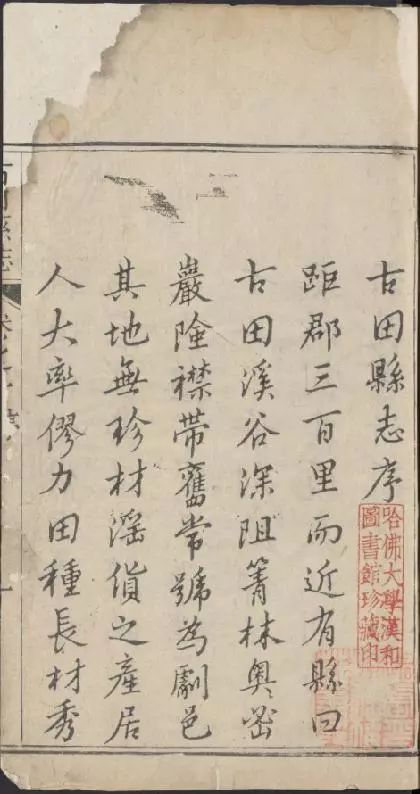 古田縣志序
距郡三百里而近有縣曰
古田溪谷深阻箐林奧密
巖險襟帶舊常號為劇邑
其地無珍材滛貨之產居
人大率僇力田種長材秀
哈佛大學漢和
圖書館珍藏印
縣志